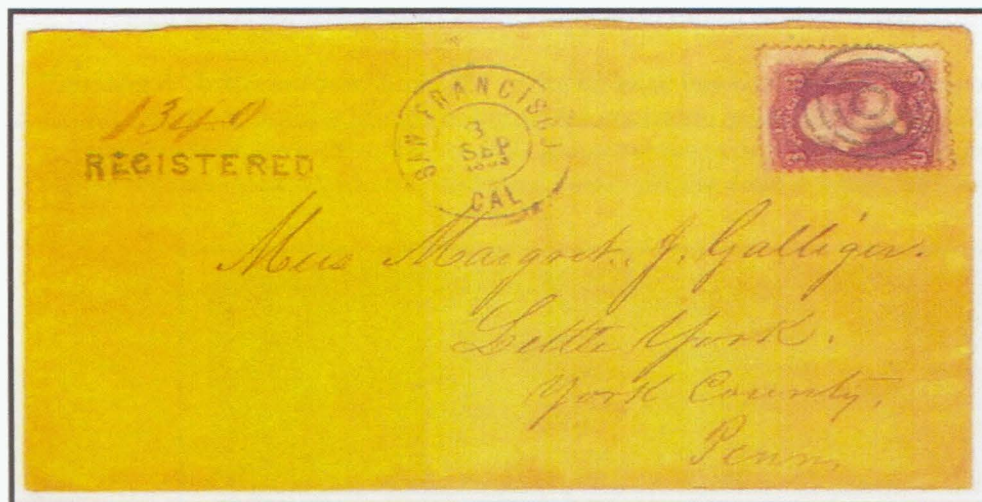 1340
REGISTERED
SAN FRANCISCO
3
SEP
CAL
3 3
Margret. J. Galliger.
Little York.
York County,
Penn,